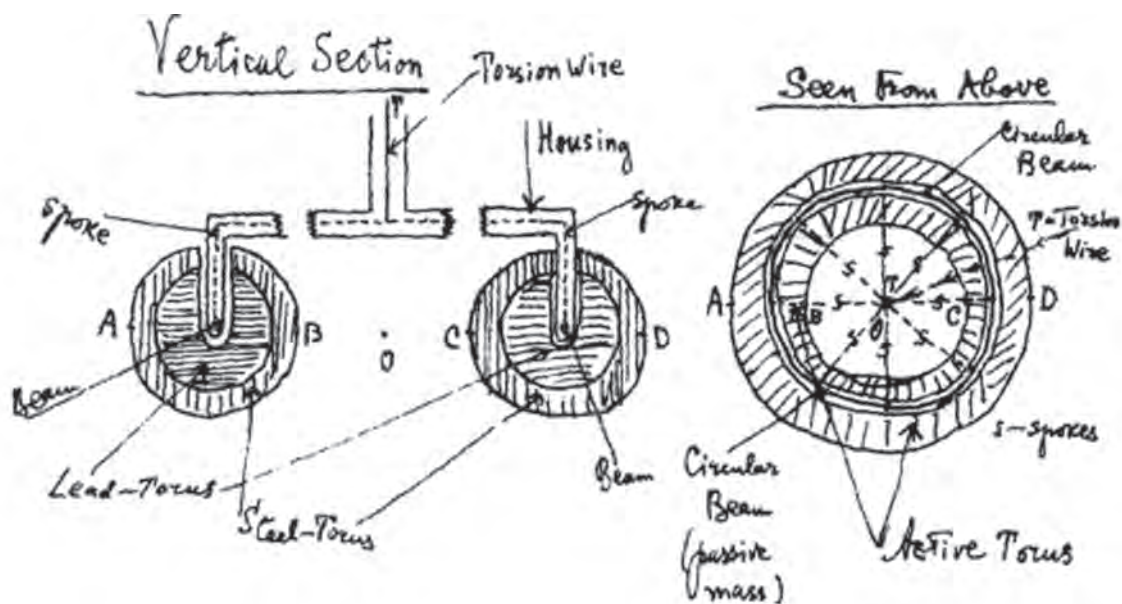 Vertical Section
Torsion Wire
T
Housing
Spoke
Spoke
A
B
O
C
D
Beam
Beam
Lead-Torus
Steel-Torus
Seen From Above
Circular
Beam
T-Torsion
Wire
A
B
C
D
T
O
s
s
s
s
s
s
s
s
s-spokes
Circular
Beam
(passive
mass)
Active Torus